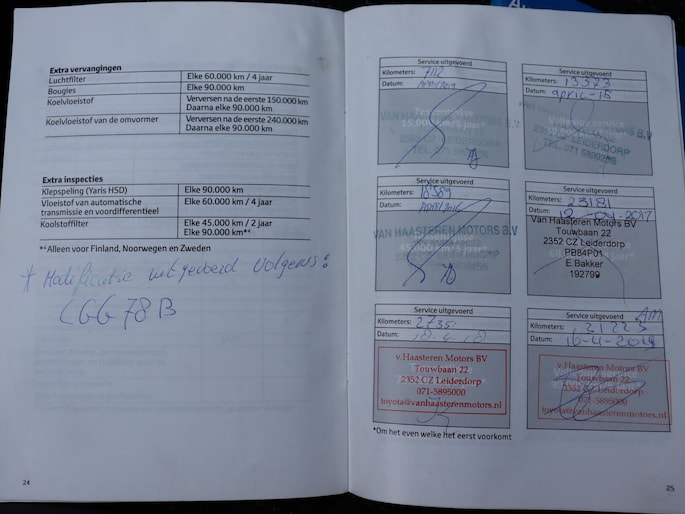 Extra vervangingen
Luchtfilter Elke 60.000 km / 4 jaar
Bougies Elke 90.000 km
Koelvloeistof Verversen na de eerste 150.000 km
Daarna elke 90.000 km
Koelvloeistof van de omvormer Verversen na de eerste 240.000 km
Daarna elke 90.000 km
Extra inspecties
Klepspeling (Yaris HSD) Elke 90.000 km
Vloeistof van automatische
transmissie en voordifferentieel Elke 60.000 km / 4 jaar
Koolstoffilter Elke 45.000 km / 2 jaar
Elke 90.000 km**
**Alleen voor Finland, Noorwegen en Zweden
* Modificatie uitgevoerd volgens:
CGG 78B
24
Service uitgevoerd
Kilometers:
Datum:
VAN HAASTEREN MOTORS B.V
Service uitgevoerd
Kilometers: 13373
Datum: april-15
LEIDERDORP
TEL. 071 5895000
Service uitgevoerd
Kilometers: 18589
Datum:
VAN HAASTEREN MOTORS B.V
Service uitgevoerd
Kilometers: 23181
Datum: 12-04-2017
Van Haasteren Motors BV
Touwbaan 22
2352 CZ Leiderdorp
PB84P01
E.Bakker
192799
Service uitgevoerd
Kilometers: 2735
Datum:
v.Haasteren Motors BV
Touwbaan 22
2352 CZ Leiderdorp
071-5895000
toyota@vanhaasterenmotors.nl
Service uitgevoerd
Kilometers: 21223
Datum: 16-4-2019
v.Haasteren Motors BV
Touwbaan 22
2352 CZ Leiderdorp
071-5895000
toyota@vanhaasterenmotors.nl
*Om het even welke het eerst voorkomt
25